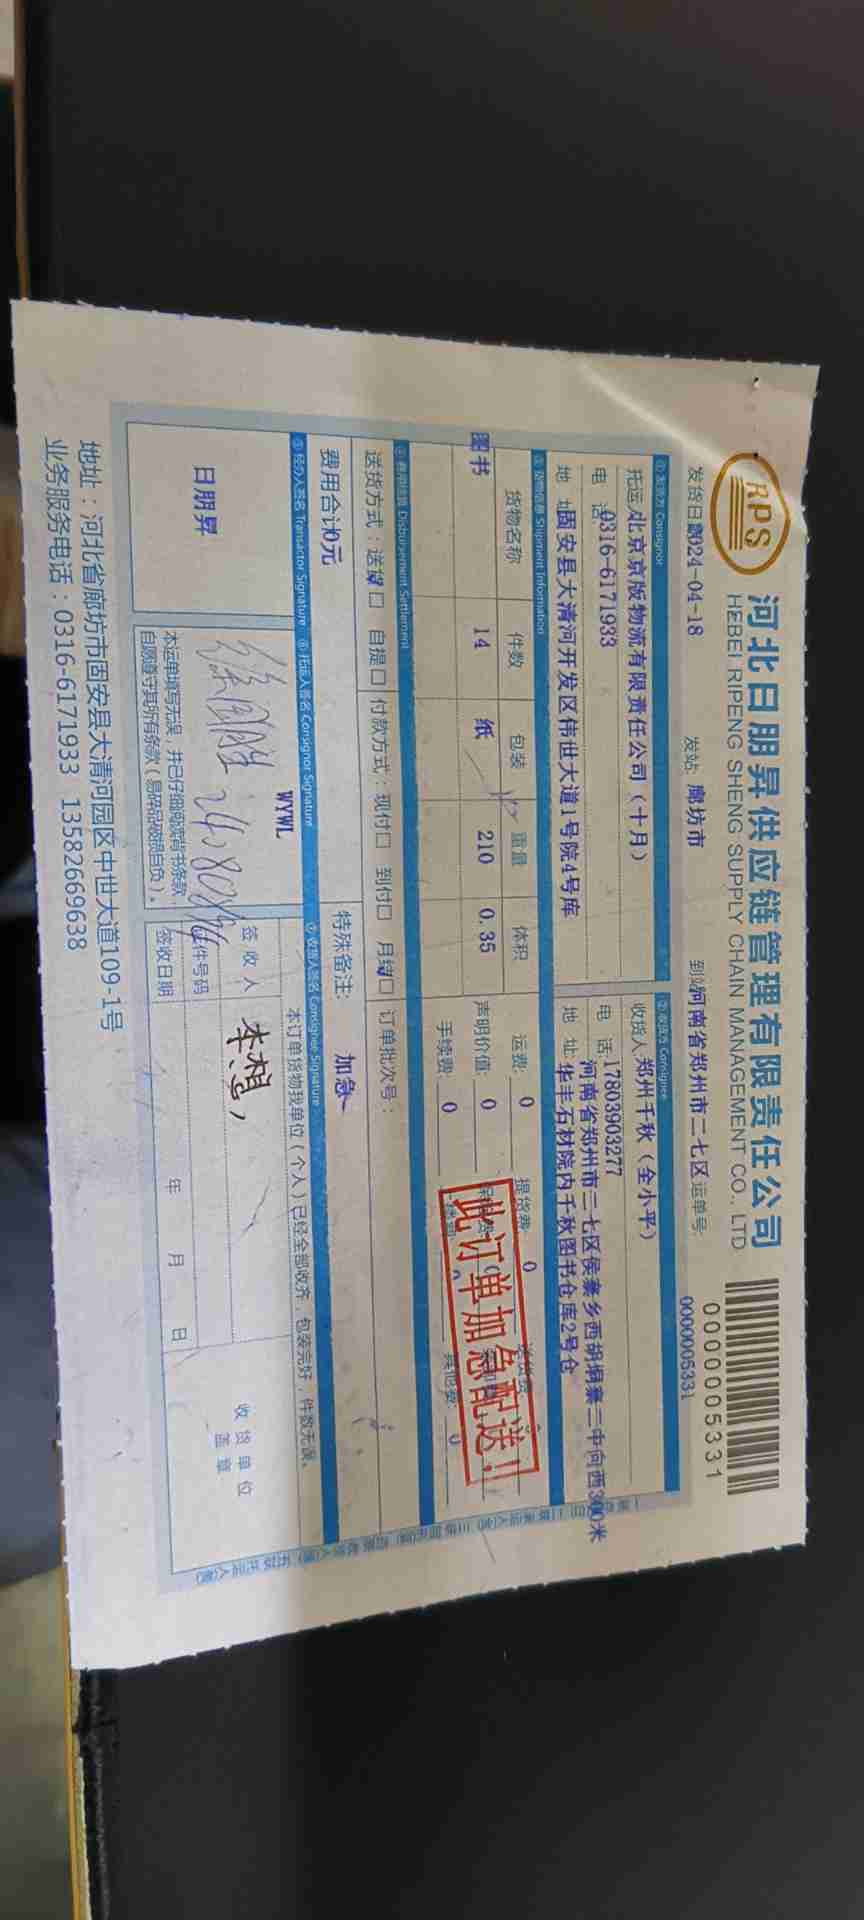 RPS
河北日朋昇供应链管理有限责任公司
HEBEI RIPENG SHENG SUPPLY CHAIN MANAGEMENT CO., LTD
0000005331
发货日期2024-04-18 发站: 廊坊市 到站河南省郑州市二七区 运单号: 0000005331
①发货方 Consignor ②收货方 Consignee
托运人北京京版物流有限责任公司(十月) 收货人郑州千秋(全小平)
电 话0316-6171933 电 话17803903277
地 址固安县大清河开发区伟世大道1号院4号库 地 址河南省郑州市二七区侯寨乡西胡垌寨二中向西300米
华丰石材院内千秋图书仓库2号仓
③货物信息 Shipment Information
货物名称 件数 包装 重量 体积 运费: 0 提货费: 0 送货费
图书 14 纸 210 0.35 声明价值: 0
手续费: 0 其他费: 0
此订单加急配送!
Disbursement Settlement
送货方式:送货 自提 付款方式:现付 到付 月结 订单批次号:
费用合计0元 特殊备注: 加急
⑤经办人签名 Transactor Signature ⑥托运人签名 Consignor Signature ⑦收货人签名 Consignee Signature
日朋昇 WYWL 本订单货物我单位(个人)已经全部收齐,包装完好,件数无误。
签 收 人 李想 收货单位
盖章
证件号码
签收日期 年 月 日
本运单填写无误,并已仔细阅读背书条款,
自愿遵守其所有条款(易碎品破损自负)。
地址:河北省廊坊市固安县大清河园区中世大道109-1号
业务服务电话:0316-6171933 13582669638